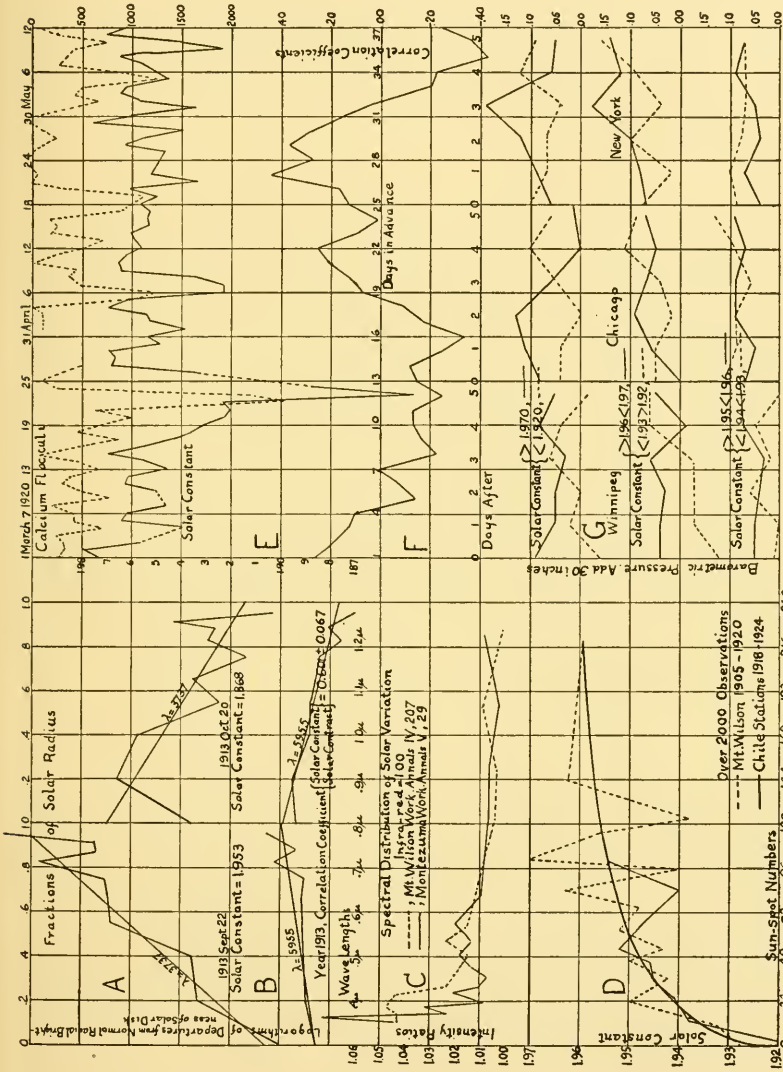 Fractions of Solar Radius
0 .2 .4 .6 .8 1.0 .2 .4 .6 .8 1.0
Logarithms of Departures from Normal Radial Bright-
ness of Solar Disk
A
λ=3737
λ=3737
1913 Sept 22
Solar Constant=1.953
1913 Oct 20
Solar Constant=1.868
B
λ=5955
λ=5955
Year 1913, Correlation Coefficient {Solar Constant
Solar Contrast} = 0.601 ± 0.067
Wave Lengths
.5μ .6μ .7μ .8μ .9μ 1.0μ 1.1μ 1.2μ
Spectral Distribution of Solar Variation
Infra-red=1.00
----, Mt. Wilson Work. Annals IV, 207
——, Montezuma Work. Annals V, 29
C
Intensity Ratios
1.06
1.05
1.04
1.03
1.02
1.01
1.00
D
Solar Constant
1.97
1.96
1.95
1.94
1.93
1.92
Over 2000 Observations
---- Mt. Wilson 1905-1920
—— Chile Stations 1918-1924
Sun-Spot Numbers
1 March 7 1920 13 19 25 31 April 6 12 18 24 30 May 6 12
Calcium Flocculi
Solar Constant
500
1000
1500
2000
1.98
7
6
5
4
3
2
1
1.90
9
8
1.87
E
.40
.20
.00
-.20
-.40
Correlation Coefficients
1 4 7 10 13 16 19 22 25 28 31 34 37
Days in Advance
F
Days After
0 1 2 3 4 5 0 1 2 3 4 5 0 1 2 3 4 5
Solar Constant {>1.970, ——
<1.920, ----
G
Winnipeg
Chicago
New York
Solar Constant {>1.96<1.97, ——
<1.93>1.92, ----
Solar Constant {>1.95<1.96, ——
<1.94<1.93, ----
Barometric Pressure. Add 30 inches
.15
.10
.05
.00
.15
.10
.05
.00
.15
.10
.05
.00